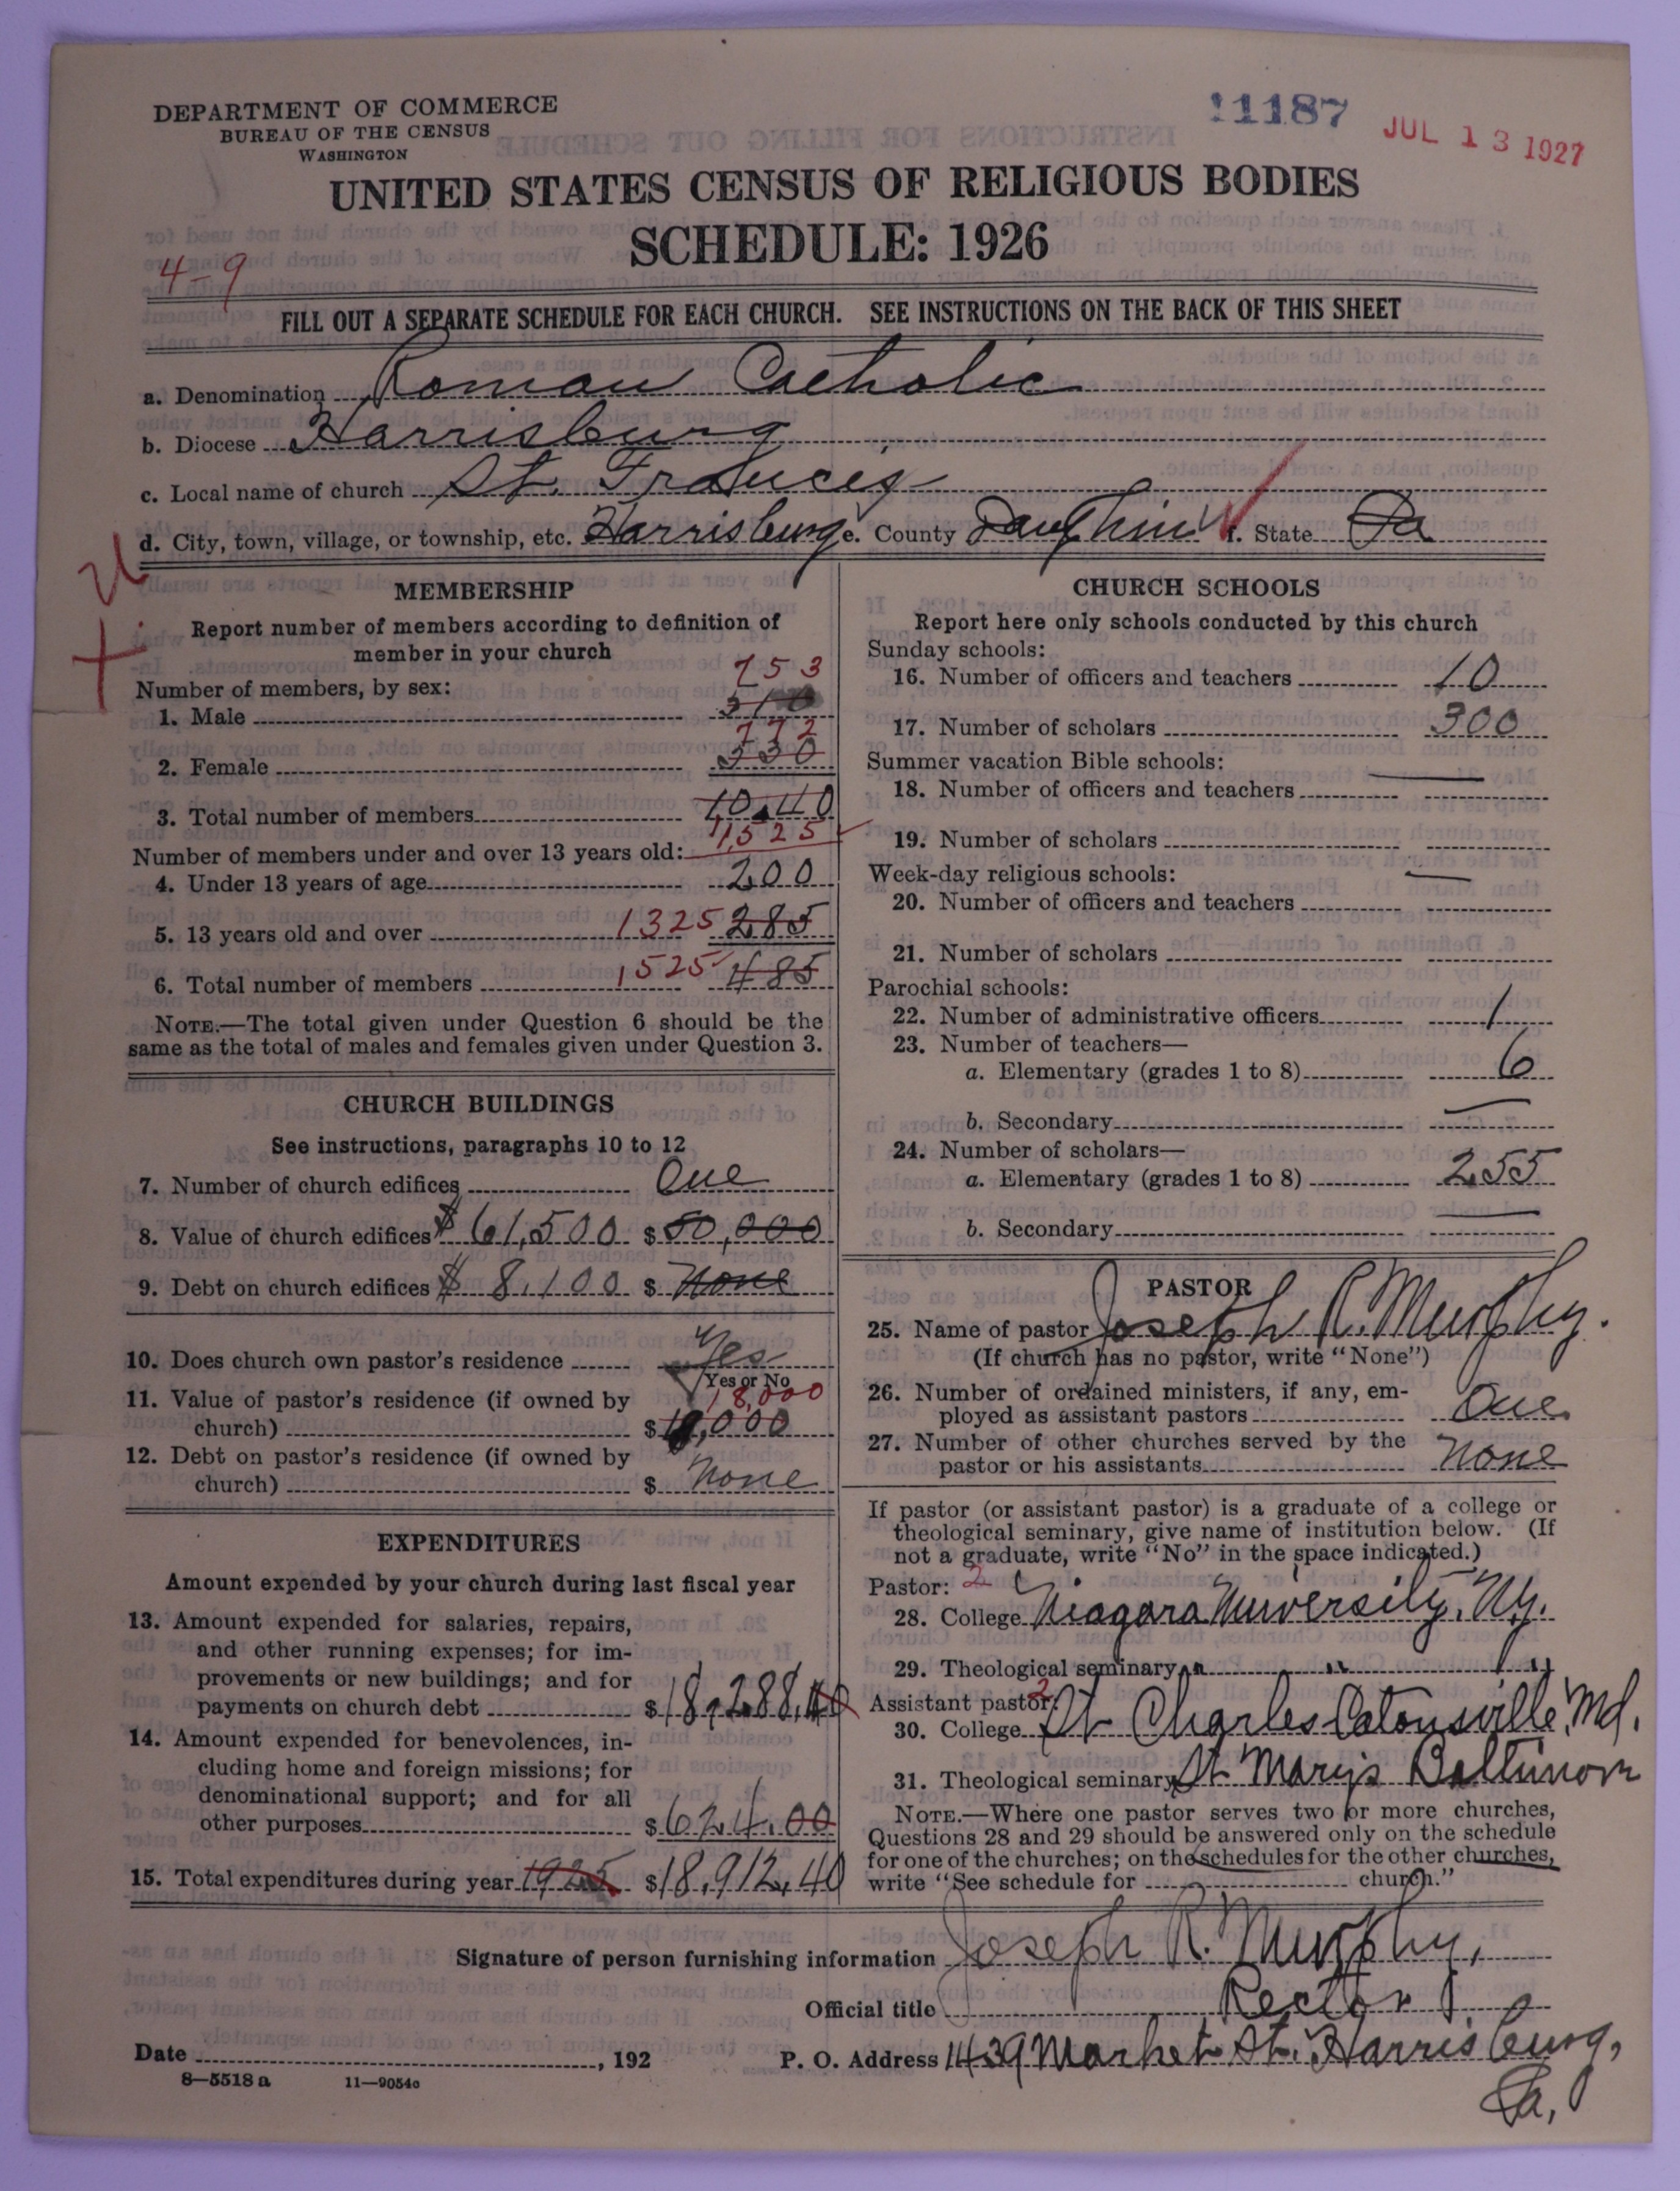 DEPARTMENT OF COMMERCE
BUREAU OF THE CENSUS
WASHINGTON
11187
JUL 13 1927
UNITED STATES CENSUS OF RELIGIOUS BODIES
SCHEDULE: 1926
4-9
FILL OUT A SEPARATE SCHEDULE FOR EACH CHURCH. SEE INSTRUCTIONS ON THE BACK OF THIS SHEET
a. Denomination Roman Catholic
b. Diocese Harrisburg
c. Local name of church St. Francis
d. City, town, village, or township, etc. Harrisburg e. County Dauphin f. State Pa
MEMBERSHIP
Report number of members according to definition of
member in your church
Number of members, by sex:
753
1. Male 510
772
2. Female 530
3. Total number of members 10,40
1,525
Number of members under and over 13 years old:
4. Under 13 years of age 200
5. 13 years old and over 1325 285
6. Total number of members 1525 485
NOTE.—The total given under Question 6 should be the
same as the total of males and females given under Question 3.
CHURCH BUILDINGS
See instructions, paragraphs 10 to 12
7. Number of church edifices One
8. Value of church edifices $61,500 $50,000
9. Debt on church edifices $8,100 $ None
10. Does church own pastor's residence Yes
Yes or No
18,000
11. Value of pastor's residence (if owned by
church) $ 18,000
12. Debt on pastor's residence (if owned by
church) $ None
EXPENDITURES
Amount expended by your church during last fiscal year
13. Amount expended for salaries, repairs,
and other running expenses; for im-
provements or new buildings; and for
payments on church debt $18,288.40
14. Amount expended for benevolences, in-
cluding home and foreign missions; for
denominational support; and for all
other purposes $624.00
15. Total expenditures during year 1925 $18,912.40
CHURCH SCHOOLS
Report here only schools conducted by this church
Sunday schools:
16. Number of officers and teachers 10
17. Number of scholars 300
Summer vacation Bible schools:
18. Number of officers and teachers
19. Number of scholars
Week-day religious schools:
20. Number of officers and teachers
21. Number of scholars
Parochial schools:
22. Number of administrative officers 1
23. Number of teachers—
a. Elementary (grades 1 to 8) 6
b. Secondary
24. Number of scholars—
a. Elementary (grades 1 to 8) 255
b. Secondary
PASTOR
25. Name of pastor Joseph R. Murphy.
(If church has no pastor, write "None")
26. Number of ordained ministers, if any, em-
ployed as assistant pastors One
27. Number of other churches served by the
pastor or his assistants None
If pastor (or assistant pastor) is a graduate of a college or
theological seminary, give name of institution below. (If
not a graduate, write "No" in the space indicated.)
Pastor: 2
28. College Niagara University, Ny.
29. Theological seminary " " "
Assistant pastor: 2
30. College St Charles Catonsville, Md.
31. Theological seminary St Marys Baltimore
NOTE.—Where one pastor serves two or more churches,
Questions 28 and 29 should be answered only on the schedule
for one of the churches; on the schedules for the other churches,
write "See schedule for church."
Signature of person furnishing information Joseph R. Murphy,
Official title Rector
Date , 192
P. O. Address 1439 Market St. Harrisburg,
Pa,
8—5518 a 11—9054c